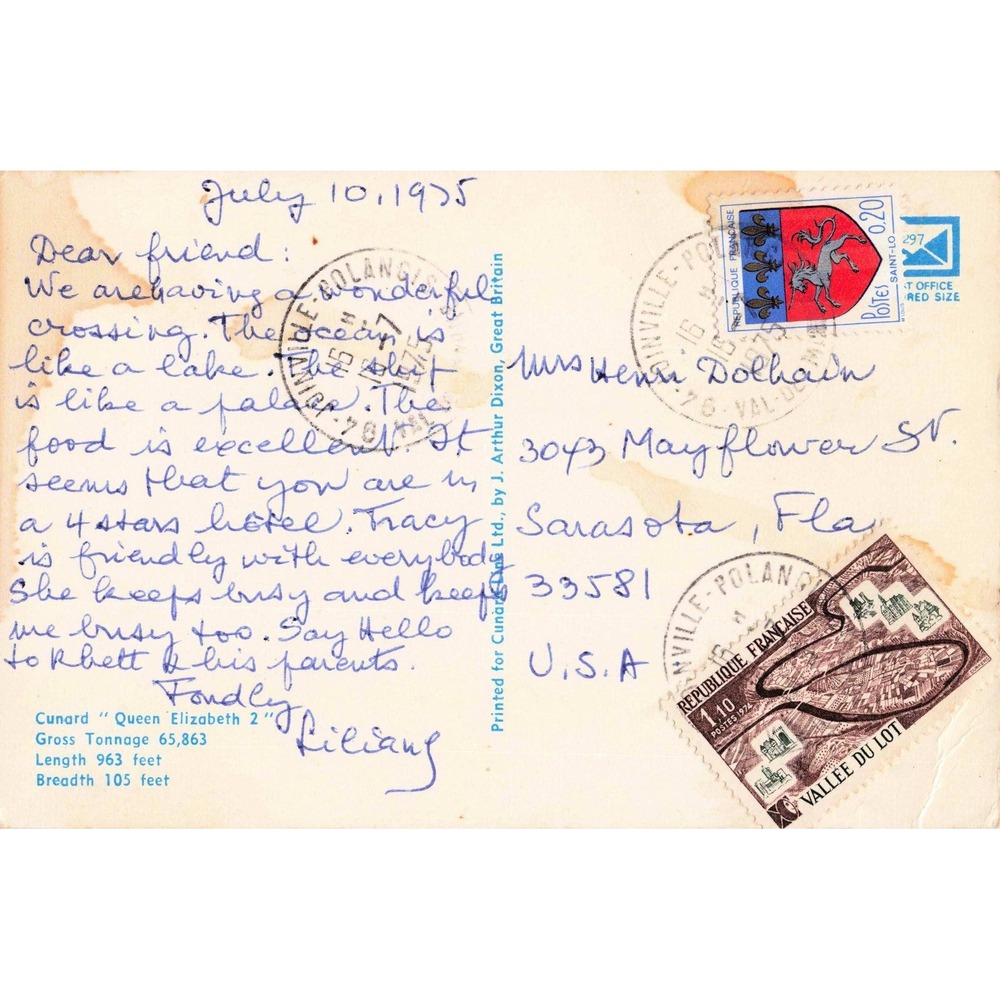 July 10, 1975
Dear friend:
We are having a wonderful
crossing. The ocean is
like a lake. The ship
is like a palace. The
food is excellent. It
seems that you are in
a 4 stars hôtel. Tracy
is friendly with everybody
She keeps busy and keeps
me busy too. Say Hello
to Rhett & his parents.
Fondly
Liliany
Cunard "Queen Elizabeth 2"
Gross Tonnage 65,863
Length 963 feet
Breadth 105 feet
Printed for Cunard Line Ltd., by J. Arthur Dixon, Great Britain
JOINVILLE-POLANGIS
16 H
15-7
1975
94 · VAL-DE-MARNE
REPUBLIQUE FRANCAISE
POSTES
0,20
SAINT-LO
297
ST OFFICE
RED SIZE
JOINVILLE-POL
16 H
15
1975
94 · VAL-DE-M
Mrs Henri Dolhain
3043 Mayflower St.
Sarasota, Fla
33581
U.S.A
INVILLE-POLANG
16 H
REPUBLIQUE FRANÇAISE
1,10
POSTES 1974
VALLÉE DU LOT